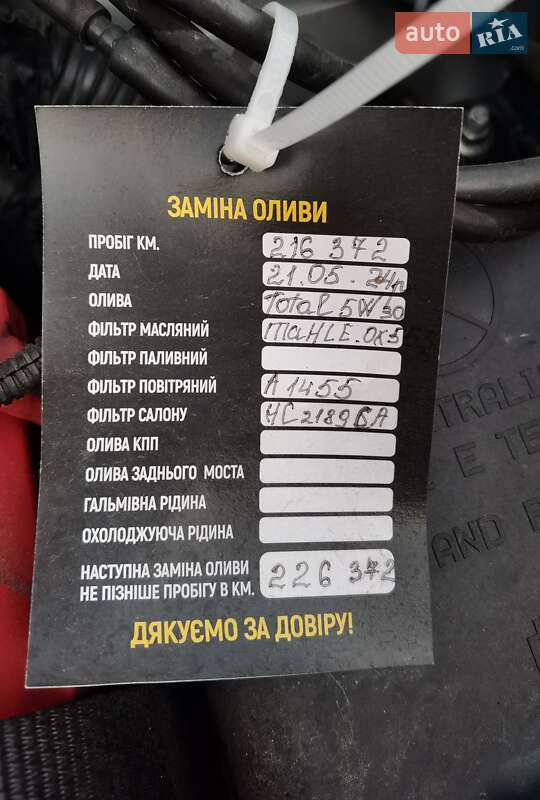 auto RIA.com
ЗАМІНА ОЛИВИ
ПРОБІГ КМ. 216 372
ДАТА 21.05.24р
ОЛИВА Total 5W30
ФІЛЬТР МАСЛЯНИЙ MAHLE.OX5
ФІЛЬТР ПАЛИВНИЙ
ФІЛЬТР ПОВІТРЯНИЙ A1455
ФІЛЬТР САЛОНУ HC2189
ОЛИВА КПП
ОЛИВА ЗАДНЬОГО МОСТА
ГАЛЬМІВНА РІДИНА
ОХОЛОДЖУЮЧА РІДИНА
НАСТУПНА ЗАМІНА ОЛИВИ
НЕ ПІЗНІШЕ ПРОБІГУ В КМ. 226 372
ДЯКУЄМО ЗА ДОВІРУ!
E TE
AND